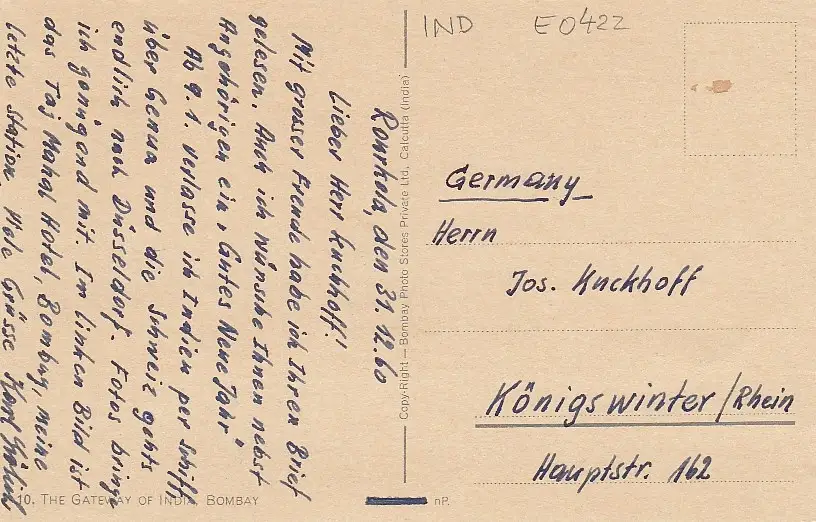 IND E0422
Rourkela, den 31.12.60
Lieber Herr Kuckhoff!
Mit grosser Freude habe ich Ihren Brief
gelesen. Auch ich wünsche Ihnen nebst
Angehörigen ein „Gutes Neue Jahr"
Ab 9.1. verlasse ich Indien per Schiff
über Genua und die Schweiz gehts
endlich nach Düsseldorf. Fotos bringe
ich genügend mit. Im linken Bild ist
das Taj Mahal Hotel, Bombay, meine
letzte Station. Viele Grüsse Karl
Copy-Right — Bombay Photo Stores Private Ltd., Calcutta (India)
Germany
Herrn
Jos. Kuckhoff
Königswinter/Rhein
Hauptstr. 162
10. THE GATEWAY OF INDIA, BOMBAY
nP.